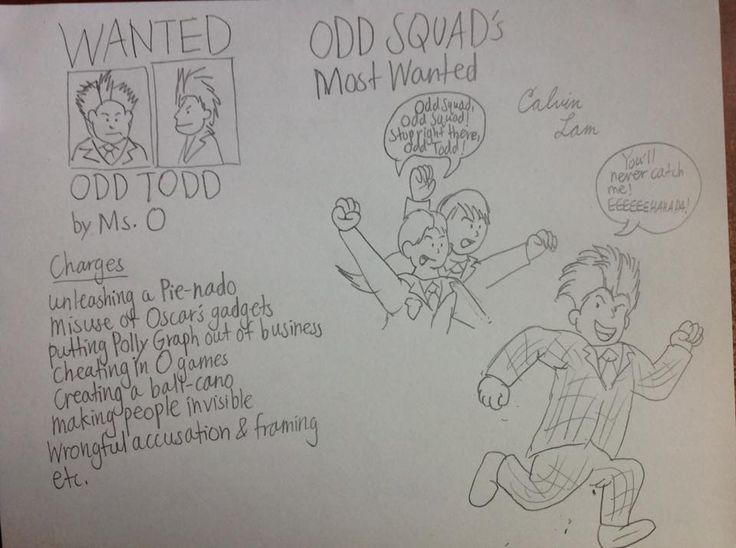 WANTED
ODD TODD
by Ms. O
Charges
unleashing a Pie-nado
misuse of Oscar's gadgets
putting Polly Graph out of business
Cheating in O games
Creating a ball-cano
making people invisible
Wrongful accusation & framing
etc.
ODD SQUAD's
Most Wanted
Odd Squad,
Odd Squad!
Stop right there,
Odd Todd!
Calvin
Lam
You'll
never catch
me!
EEEEEEHAHADA!